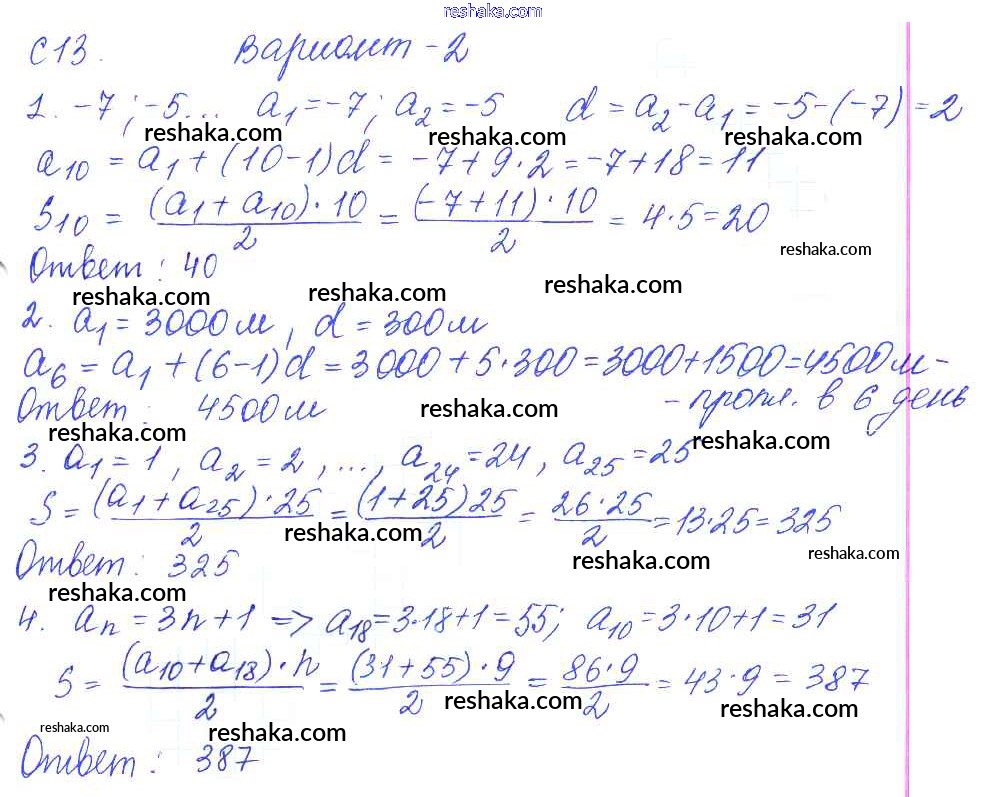 reshaka.com
С 13. Вариант - 2
1. -7; -5... a₁ = -7; a₂ = -5 d = a₂ - a₁ = -5 - (-7) = 2
reshaka.com reshaka.com reshaka.com
a₁₀ = a₁ + (10-1)d = -7 + 9·2 = -7 + 18 = 11
S₁₀ = (a₁ + a₁₀)·10 / 2 = (-7 + 11)·10 / 2 = 4·5 = 20
reshaka.com
Ответ: 40
reshaka.com reshaka.com reshaka.com
2. a₁ = 3000 м, d = 300 м
a₆ = a₁ + (6-1)d = 3000 + 5·300 = 3000 + 1500 = 4500 м -
Ответ: 4500 м - пропл. в 6 день
reshaka.com reshaka.com reshaka.com
3. a₁ = 1, a₂ = 2, ..., a₂₄ = 24, a₂₅ = 25
S = (a₁ + a₂₅)·25 / 2 = (1 + 25)25 / 2 = 26·25 / 2 = 13·25 = 325
reshaka.com reshaka.com reshaka.com
Ответ: 325
reshaka.com
4. aₙ = 3n + 1 => a₁₈ = 3·18 + 1 = 55; a₁₀ = 3·10 + 1 = 31
S = (a₁₀ + a₁₈)·n / 2 = (31 + 55)·9 / 2 = 86·9 / 2 = 43·9 = 387
reshaka.com reshaka.com reshaka.com reshaka.com
Ответ: 387